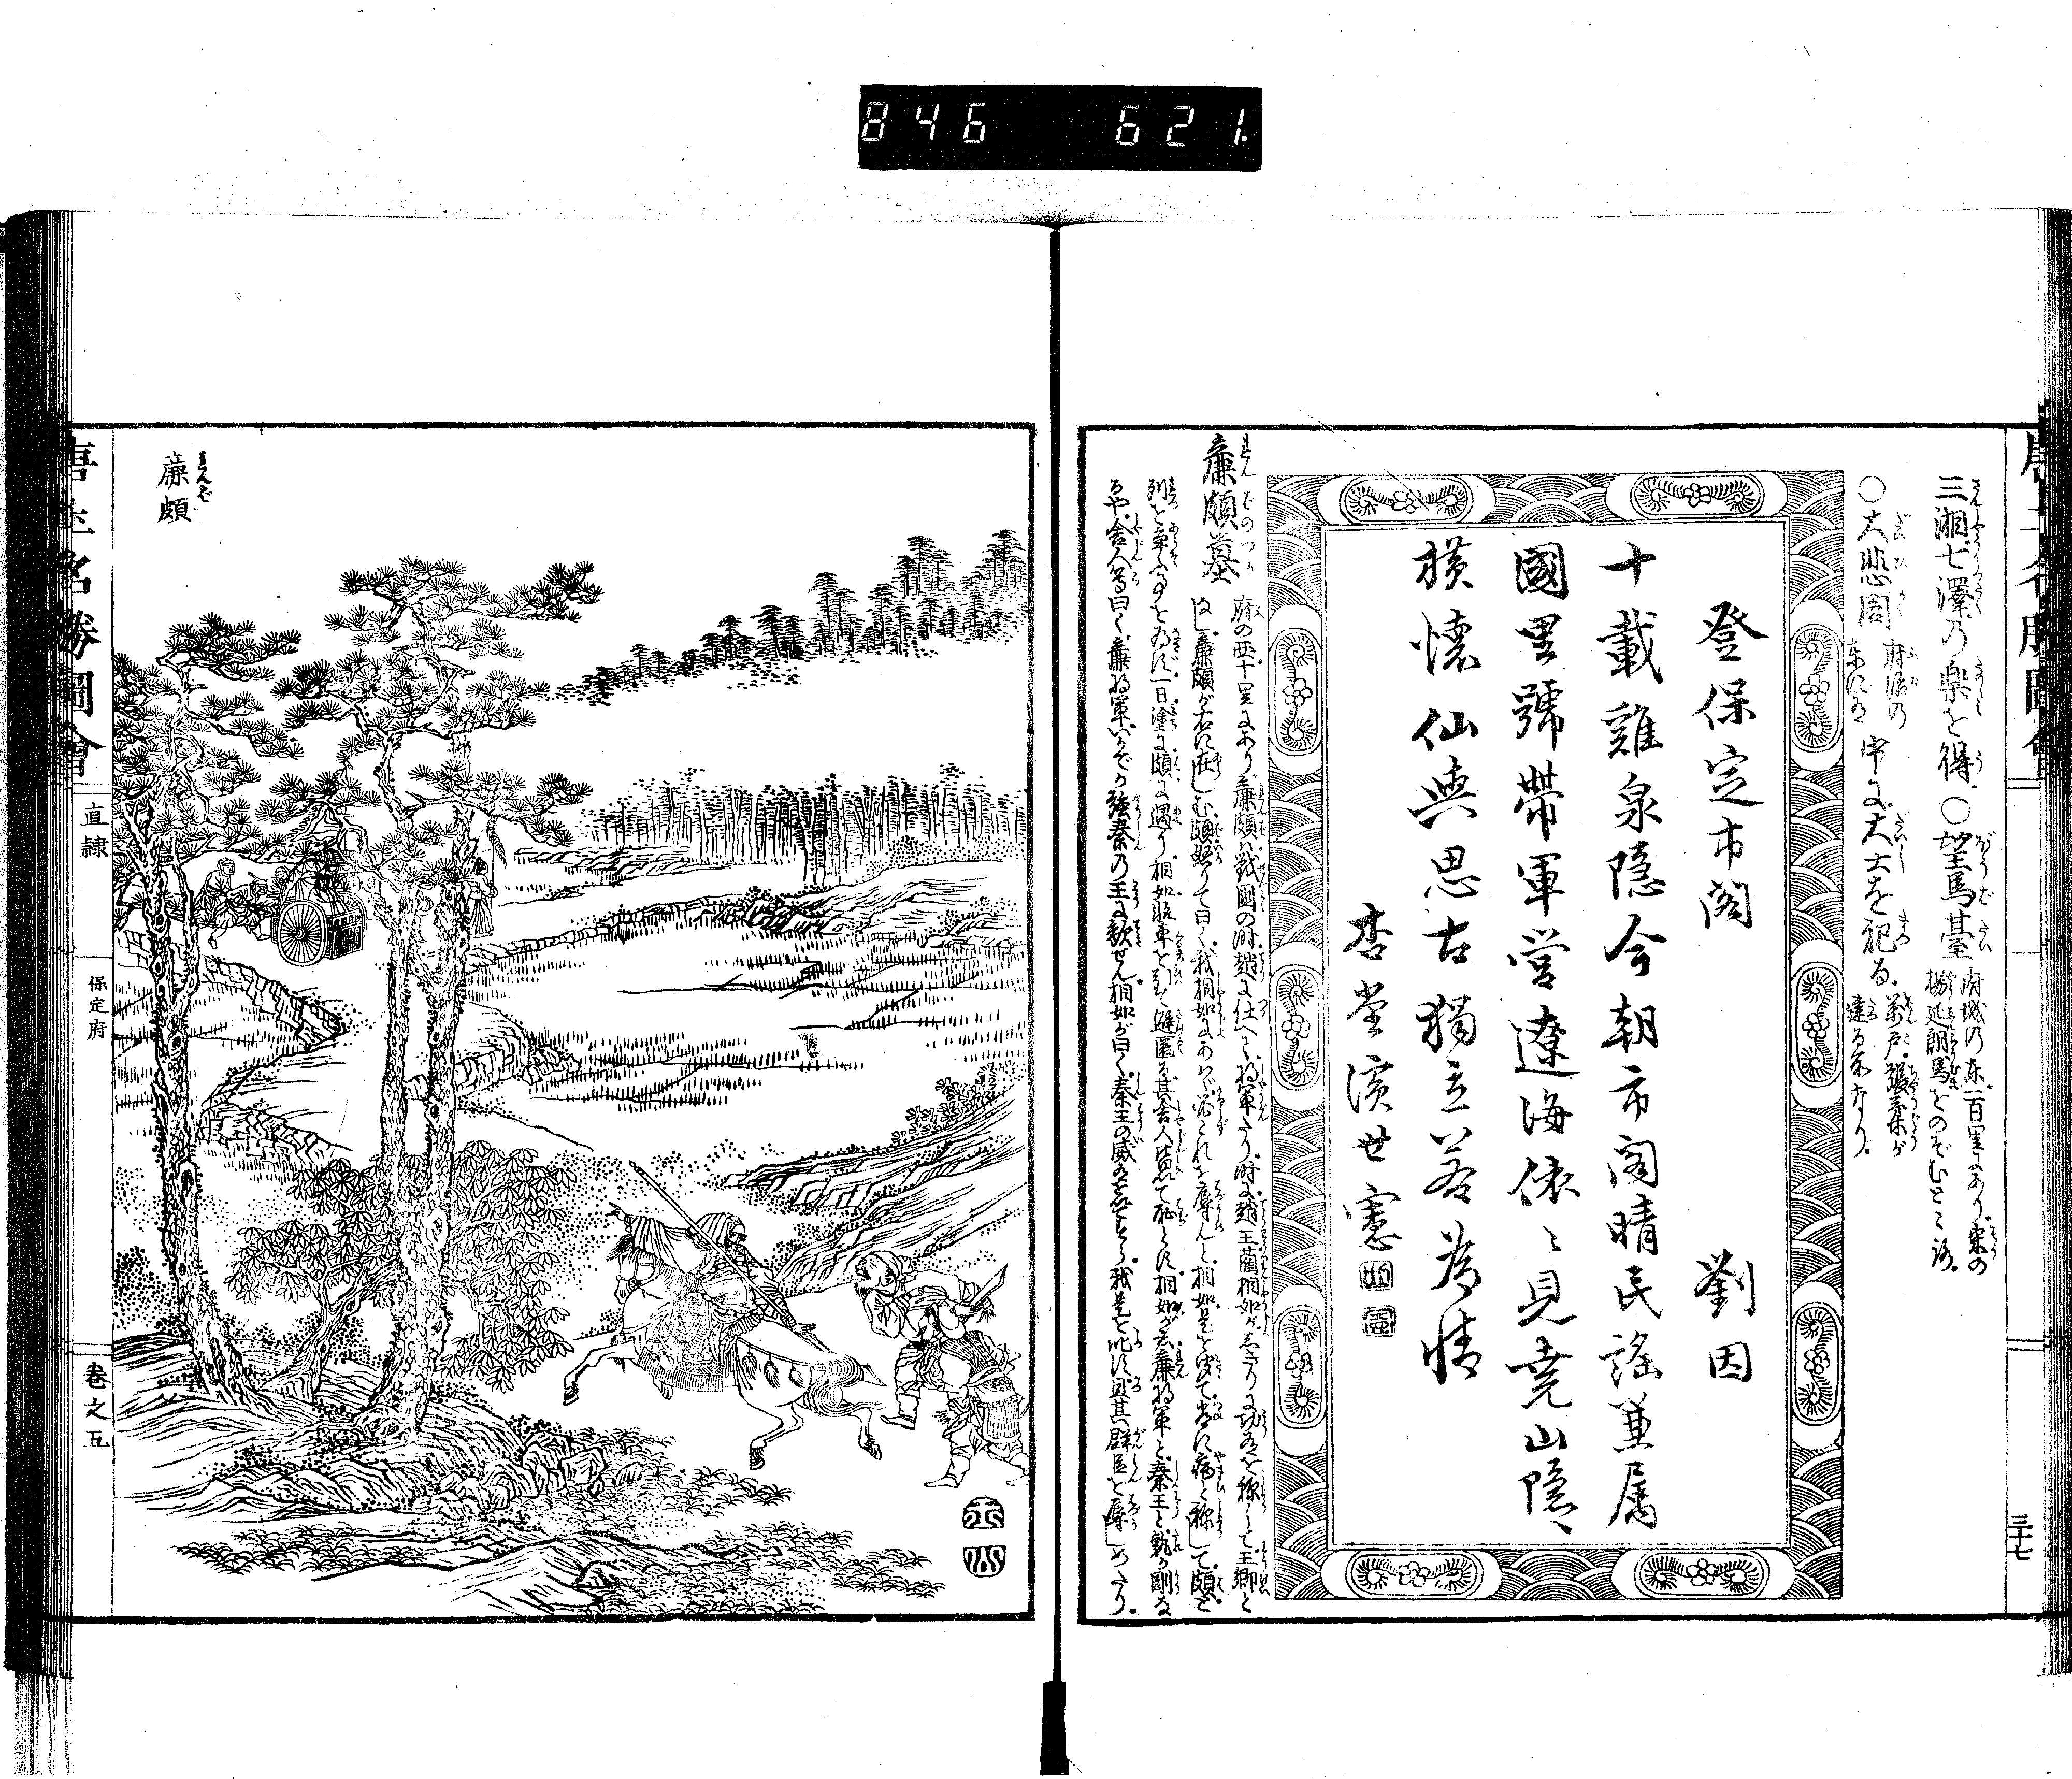 846 621.
三湘七澤の樂を得。〇望馬臺
府城の東一百里にあり。宋の
楊延朗馬をのぞむところ。
〇大悲閣
府治の
東にあり
中に大士を祀る。
萬戸張柔が
建る所なり。
登保定市閣 劉因
十載雞泉隱今朝市閣晴民謠兼屬
國里號帶軍營遼海依〻見堯山隱〻
橫懷仙與思古獨立若為情
杏堂濱世憲
廉頗墓
府の西十里にあり。廉頗は戰國の時。趙に仕へて將軍たり。時に趙王藺相如がしきりに功あるを稱して王卿と
なし。廉頗が右に在しむ。頗怒りて曰く。我相如にあはゞ必これを辱んと。相如是を聞て常に病と稱して。頗と
列を爭ふ事をなさず。一日塗に頗に遇り。相如車を引て避匿る。其舍人皆以て恥とす。相如が云廉將軍と秦王と孰か剛な
るや。舍人答曰く。廉將軍いかでか強秦の王に敵せん。相如が曰く。秦王の威を以てすら我是を叱す。且其群臣を辱しめたり。
唐土名勝圖會
三十七
廉頗
れんぱ
唐土名勝圖會
直隷
保定府
卷之五